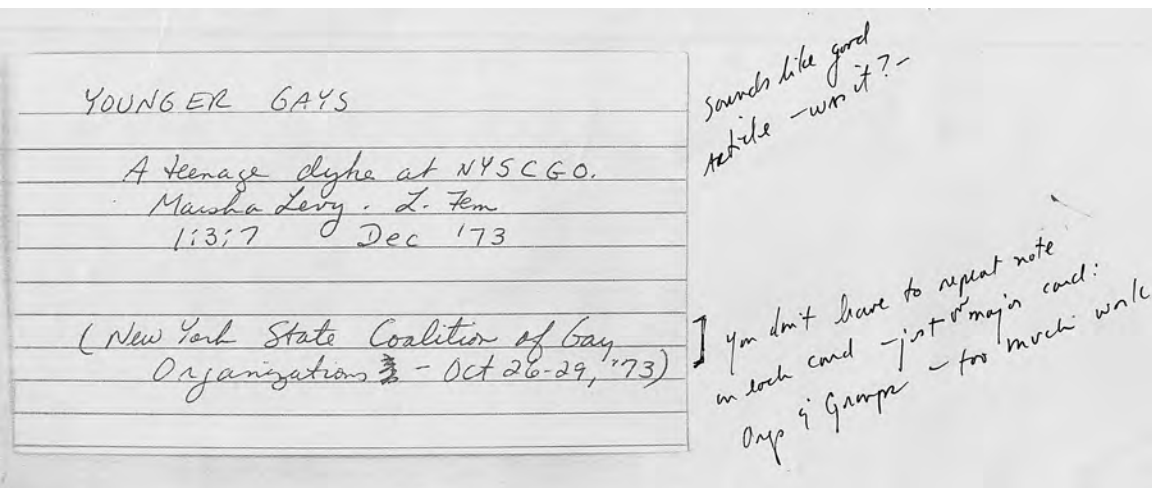 YOUNGER GAYS
A teenage dyke at NYSCGO.
Marsha Levy. L. Fem
1:3:7 Dec '73
(New York State Coalition of Gay
Organizations - Oct 26-29, '73)
Sounds like good
article - was it? -
] You don't have to repeat note
on each card - just on major card:
Orgs & Groups - too much work